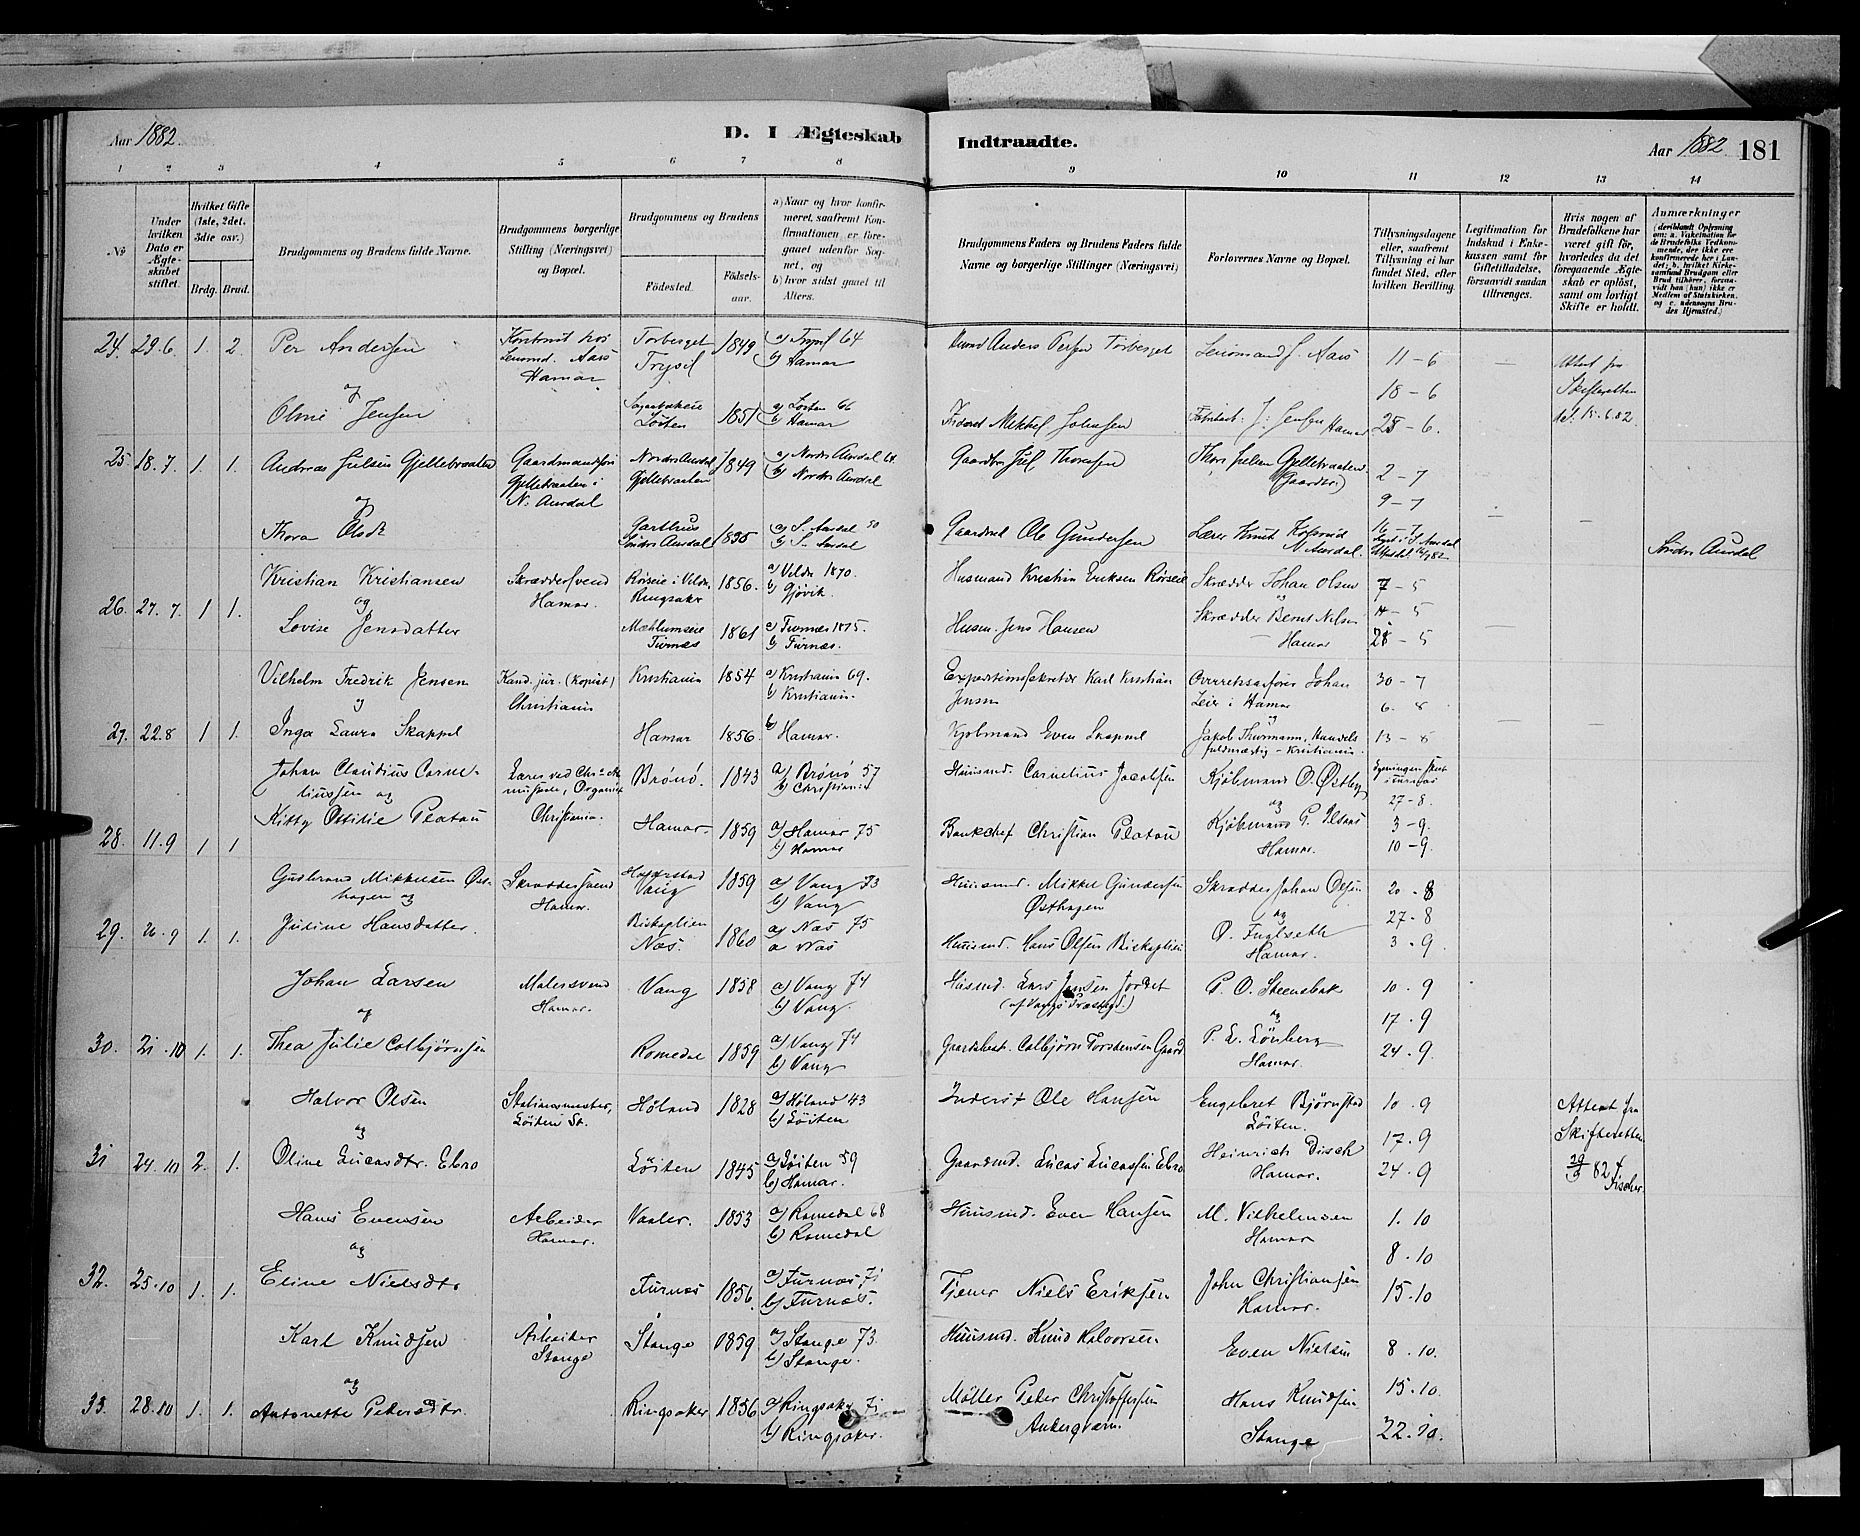 Aar 1882.
D. I Ægteskab
Indtraadte.
Aar 1882. 181
1 2 3 4 5 6 7 8 9 10 11 12 13 14
No
Under hvilken Dato er Ægteskabet stiftet.
Hvilket Gifte (1ste, 2det, 3die osv.)
Brdg. Brud.
Brudgommens og Brudens fulde Navne.
Brudgommens borgerlige Stilling (Næringsvei) og Bopæl.
Brudgommens og Brudens
Födested. Födselsaar.
a) Naar og hvor konfirmeret, saafremt Konfirmationen er foregaaet udenfor Sognet, og
b) hvor sidst gaaet til Alters.
Brudgommens Faders og Brudens Faders fulde Navne og borgerlige Stillinger (Næringsvei)
Forlovernes Navne og Bopæl.
Tillysningsdagene eller, saafremt Tillysning ei har fundet Sted, efter hvilken Bevilling.
Legitimation for Indskud i Enkekassen samt for Giftetilladelse, forsaavidt saadan tiltrænges.
Hvis nogen af Brudefolkene har været gift før, hvorledes da det foregaaende Ægteskab er oplöst, samt om lovligt Skifte er holdt.
Anmærkninger
24. 29.6 1. 2. Per Andersen
Hamar Torberget Trysil 1849 a) Trysil 64
b) Hamar
Anders Persen Torberget Lensmand J. Aars 11-6
Attest fra Skifteretten
18-6
og
Olme Jensen Löiten 1851 a) Löiten 66
b) Hamar
Mikkel Johnsen Fabrikant J. Jensen Hamar 25-6.
25. 18.7. 1. 1. Andreas Julsen Gjellebraaten
Gjellebraaten i N. Aurdal
Nordre Aurdal Gjellebraaten 1849 a) Nordre Aurdal 64
b) Nordre Aurdal
Gaardbr. Juel Thoresen Thore Juelsen Gjellebraaten (Gaardbr.) 2-7
9-7
og
Thora Olsdr. Garthus Söndre Aurdal 1835 a) S. Aurdal 50
b) S. Aurdal
Gaardmd. Ole Gundersen Lærer Knut N. Aurdal. 16-7
Söndre Aurdal
26. 27.7. 1 1. Kristian Kristiansen Skrædersvend Hamar. Rörseie i Veldre Ringsaker 1856. a) Veldre 1870.
b) Gjövik.
Husmand Kristian Eriksen Rörseie Skrædder Johan Olsen 7-5
og
og
Lovise Jensdatter Mæhlumseie Furnæs 1861 a) Furnæs 1875.
b) Furnæs.
Husm. Jens Hansen Skrædder Bernt Nilsen Hamar 28-5
27. 22.8 1 1. Vilhelm Fredrik Jensen Kand. jur. (Kopist) Christiania Kristiania 1854 a) Kristiania 69.
b) Kristiania.
Expeditionssekretær Karl Kristian Jensen Overretssagfører Johan Leier i Hamar 30-7
6-8
og
Inga Laura Skappel Hamar 1856. b) Hamar.
Kjøbmand Even Skappel Jakob Thurmann, Handelsfuldmægtig - Kristiania. 13-8
28. 11.9 1 1 Johan Claudius Corneliussen og
Organist Christiania. Brönö. 1843 a) Brönö 57
b) Christiania
Huusmd. Cornelius Jacobsen Kjöbmand O. Østby
27-8.
og
Kitty Ottilie Platou Hamar. 1859 a) Hamar 75
b) Hamar
Bankchef Christian Platou Kjöbmand Hamar. 3-9.
10-9.
29. 26.9 1. 1. Gudbrand Mikkelsen Østhagen og
Skræddersvend Hamar. Vang 1859 a) Vang 73
b) Vang
Huusmd. Mikkel Gundersen Østhagen Skrædder Johan Olsen 20-8
og 27-8
Juline Hansdatter. Næs. 1860 a) Næs 75
a Næs
Huusmd. Hans Olsen O. Fuglseth Hamar. 3-9.
30. 21.10 1. 1. Johan Larsen Malersvend Hamar. Vang 1858 a) Vang 74
b) Vang.
Huusmd. Lars Jensen Jordet (af Vangs Præstegd.) P. O. Steensbak 10.9
og og 17.9
Thea Julie Colbjörnsen Romedal 1859 a) Vang 74
b) Vang
Colbjörn Torstensen Gaard P. L. Lönberg Hamar. 24.9.
31 24.10 2. 1. Halvor Olsen Stationsmester, Löiten St. Höland 1828 a) Höland 43
b) Löiten
Inderst Ole Hansen Engebret Björnstad Löiten. 10.9
Attest fra Skifteretten
og 17.9
Oline Lucasdtr. Ebro Löiten 1845 a) Löiten 59
b) Hamar.
Gaardmd. Lucas Lucassen Ebro Heinrich Disch Hamar. 24.9
Fischer.
32. 25.10 1. 1. Hans Evensen Arbeider Hamar. Vaaler. 1853 a) Romedal 68
b) Romedal
Huusmd. Even Hansen M. Vilhelmsen Hamar 1.10
og 8.10
Eline Nielsdtr Furnæs 1856. a) Furnæs 71
b) Furnæs.
Tjener Niels Eriksen John Christiansen Hamar. 15.10
33. 28.10 1. 1. Karl Knudsen Arbeider Stange Stange 1859 a) Stange 73.
b) Stange.
Huusmd. Knud Halvorsen Even Nielsen 8.10.
og 15.10.
Antonette Petersdtr. Ringsaker 1856 a) Ringsaker 71
b) Ringsaker.
Möller Peter Christoffersen Ankerqværn. Hans Knudsen Stange 22.10.